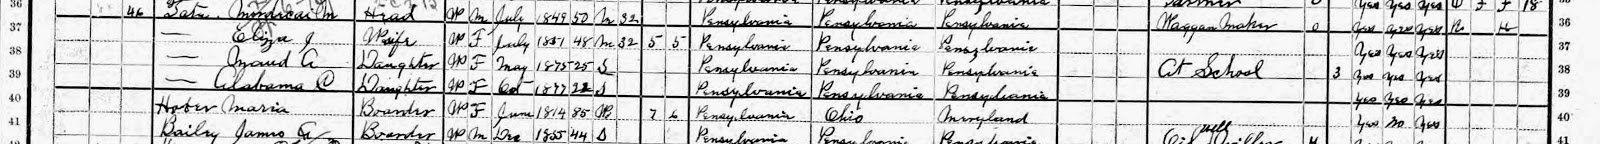 36
46 Tate, Mordicai M Head W M July 1849 50 M 32 Pensylvania Pensylvania Pensylvania Waggon Maker 0 Yes Yes Yes R H 36
37 — Eliza J Wife W F July 1851 48 M 32 5 5 Pensylvania Pensylvania Pensylvania Yes Yes Yes 37
38 — Maud A Daughter W F May 1875 25 S Pensylvania Pensylvania Pensylvania At School 3 Yes Yes Yes 38
39 — Alabama Daughter W F Oct 1877 22 S Pensylvania Pensylvania Pensylvania Yes Yes Yes 39
40 Hober Maria Boarder W F June 1814 85 W 7 6 Pensylvania Ohio Meryland Yes no Yes 40
41 Bailey James A Boarder W M Dec 1855 44 S Pensylvania Pensylvania Pensylvania well 41